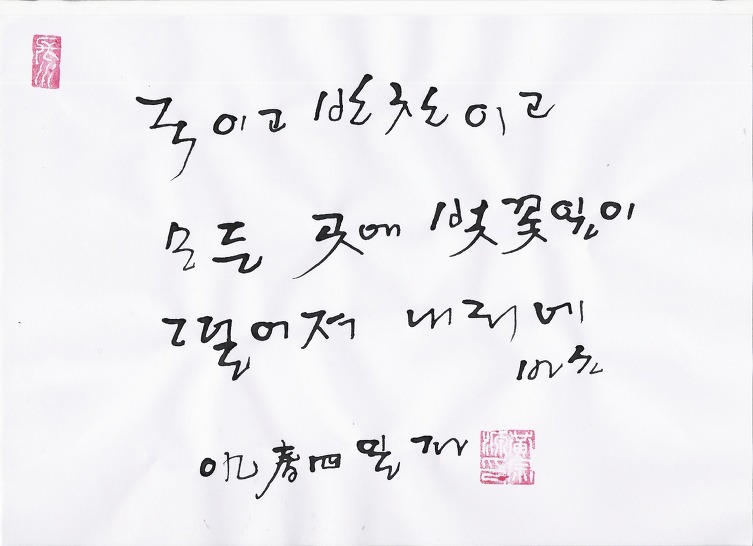 국이고 반찬이고
모든 곳에 벚꽃잎이
떨어져 내리네
바쇼
春四